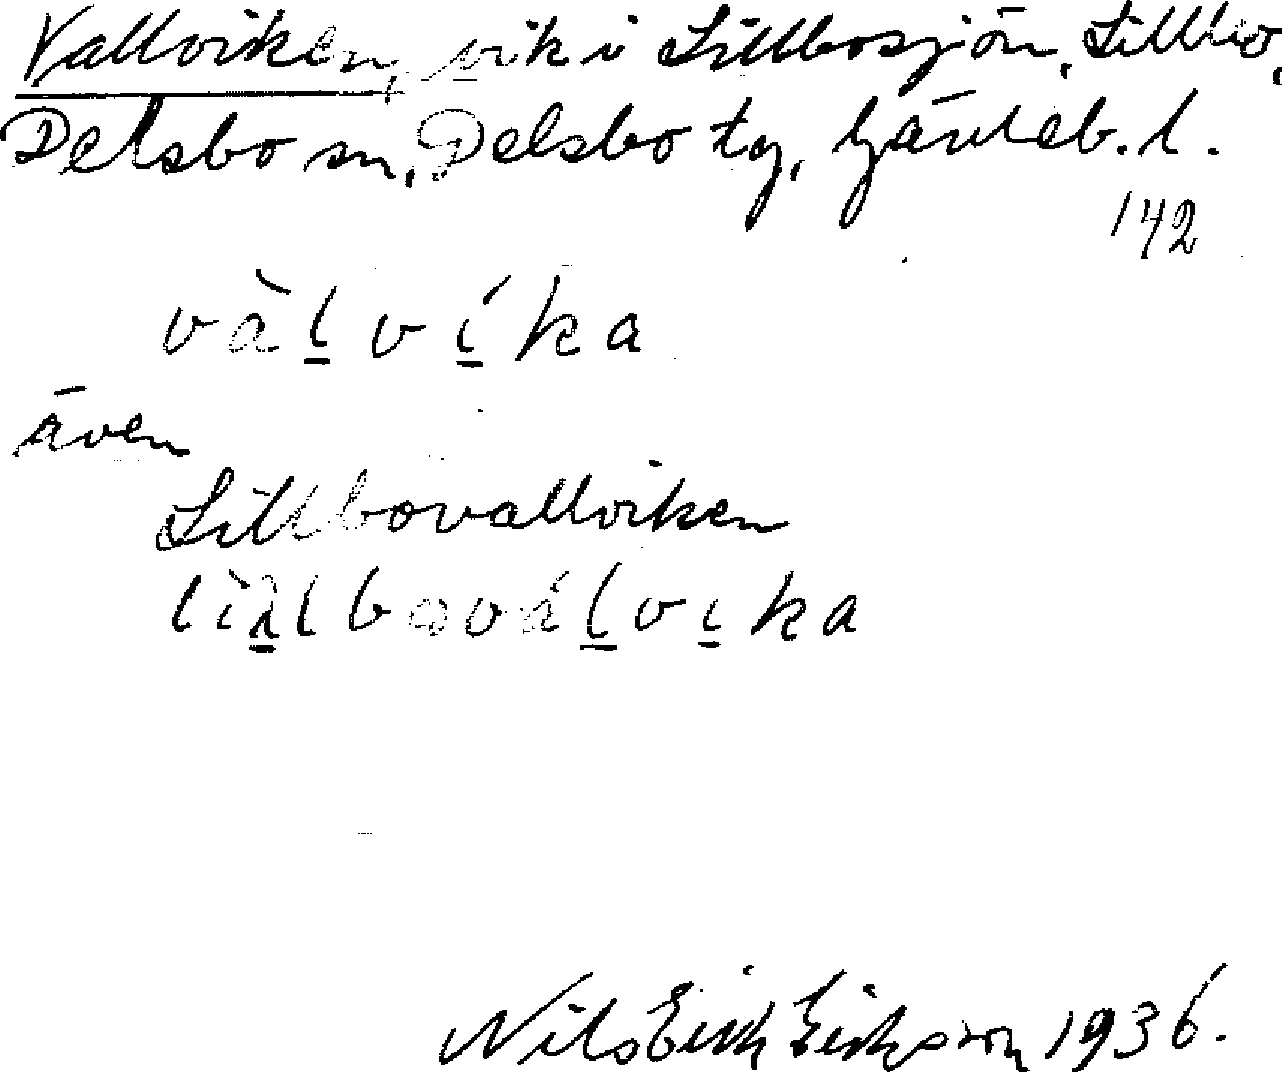 Vallviken, vik i Lillbosjön, Lillbo,
Delsbo sn, Delsbo tg, Gävleb. l.
142
vàl̲ví̲ka
även
Lillbovallviken
lìλ̲lbovál̲vi̲ka
Nils Erik Eriksson 1936.